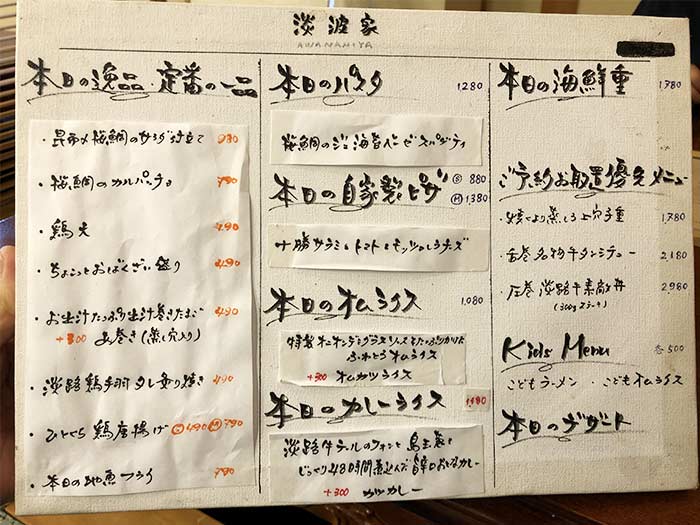 淡波家
AWANAMIYA
本日の逸品・定番の一品
・昆布〆桜鯛のサラダ仕立て 930
・桜鯛のカルパッチョ 790
・鶏天 490
・ちょこっとおばんざい盛り 490
・お出汁たっぷり出汁巻きたまご 490
+300 あ巻き(蒸し穴入り)
・淡路鶏手羽タレ炙り焼き 490
・ひとくち鶏唐揚げ 490 790
・本日の地魚フライ 790
本日のパスタ 1280
桜鯛のジェノ海苔ベーゼスパゲティ
本日の自家製ピザ Ⓢ 880
Ⓜ 1,380
十勝サラミとトマトとモッツァレラチーズ
本日のオムライス 1,080
特製オニオンデミグラスソースをたっぷりかけた
ふわとろオムライス
+300 オムカツライス
本日のカレーライス 1,480
淡路牛テールのフォンと島生姜と
じっくり48時間煮込んだ旨辛口おとなカレー
+300 カツカレー
本日の海鮮重 1,780
ご予約お取置優先メニュー
・焼くより蒸しろ上穴子重 1,780
・舌巻名物牛タンシチュー 2,180
・圧巻淡路牛素敵丼 2,980
(300gステーキ)
Kids Menu 各500
こどもラーメン ・こどもオムライス
本日のデザート